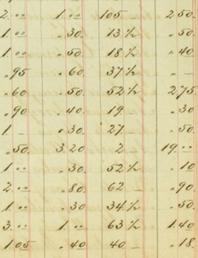 2.00 1.00 105 2.50
1.00 .30 13½ .30
1.00 .50 18½ .40
.95 .60 37½ –
.60 .50 52½ 2.75
.90 .40 19 .30
1 – .30 27 .50
.50 3.20 2 19.00
1.00 .30 52½ .10
2.00 .80 62 .90
1.00 .30 34½ .50
3.00 1.00 63½ 1.40
1.05 .40 40 – .18